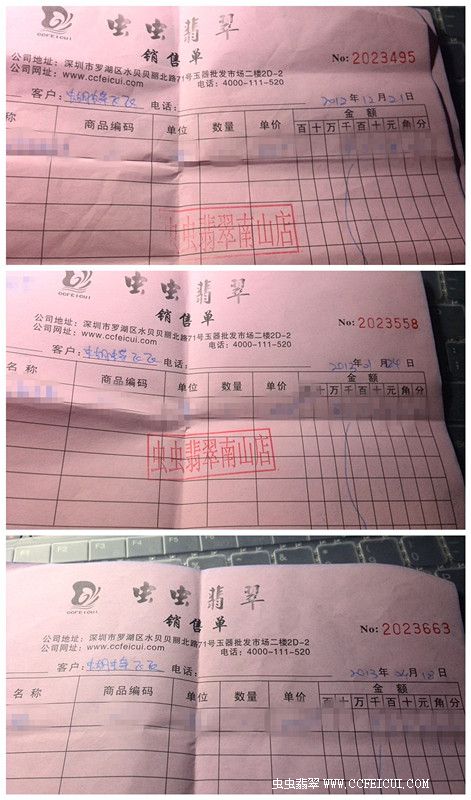 虫虫翡翠
CCFEICUI
销售单
公司地址：深圳市罗湖区水贝贝丽北路71号玉器批发市场二楼2D-2
No:2023495
公司网址：www.ccfeicui.com
电话：4000-111-520
客户：
电话：
2012年12月21日
称 商品编码 单位 数量 单价 金额
百十万千百十元角分
虫虫翡翠南山店
虫虫翡翠
CCFEICUI
销售单
公司地址：深圳市罗湖区水贝贝丽北路71号玉器批发市场二楼2D-2
No:2023558
公司网址：www.ccfeicui.com
电话：4000-111-520
客户：
电话：
年 月24日
名称 商品编码 单位 数量 单价 金额
十万千百十元角分
虫虫翡翠南山店
虫虫翡翠
CCFEICUI
销售单
公司地址：深圳市罗湖区水贝贝丽北路71号玉器批发市场二楼2D-2
No:2023663
公司网址：www.ccfeicui.com
电话：4000-111-520
客户：
电话：
2013年 月18日
名称 商品编码 单位 数量 单价 金额
百十万千百十元角分
虫虫翡翠 WWW.CCFEICUI.COM